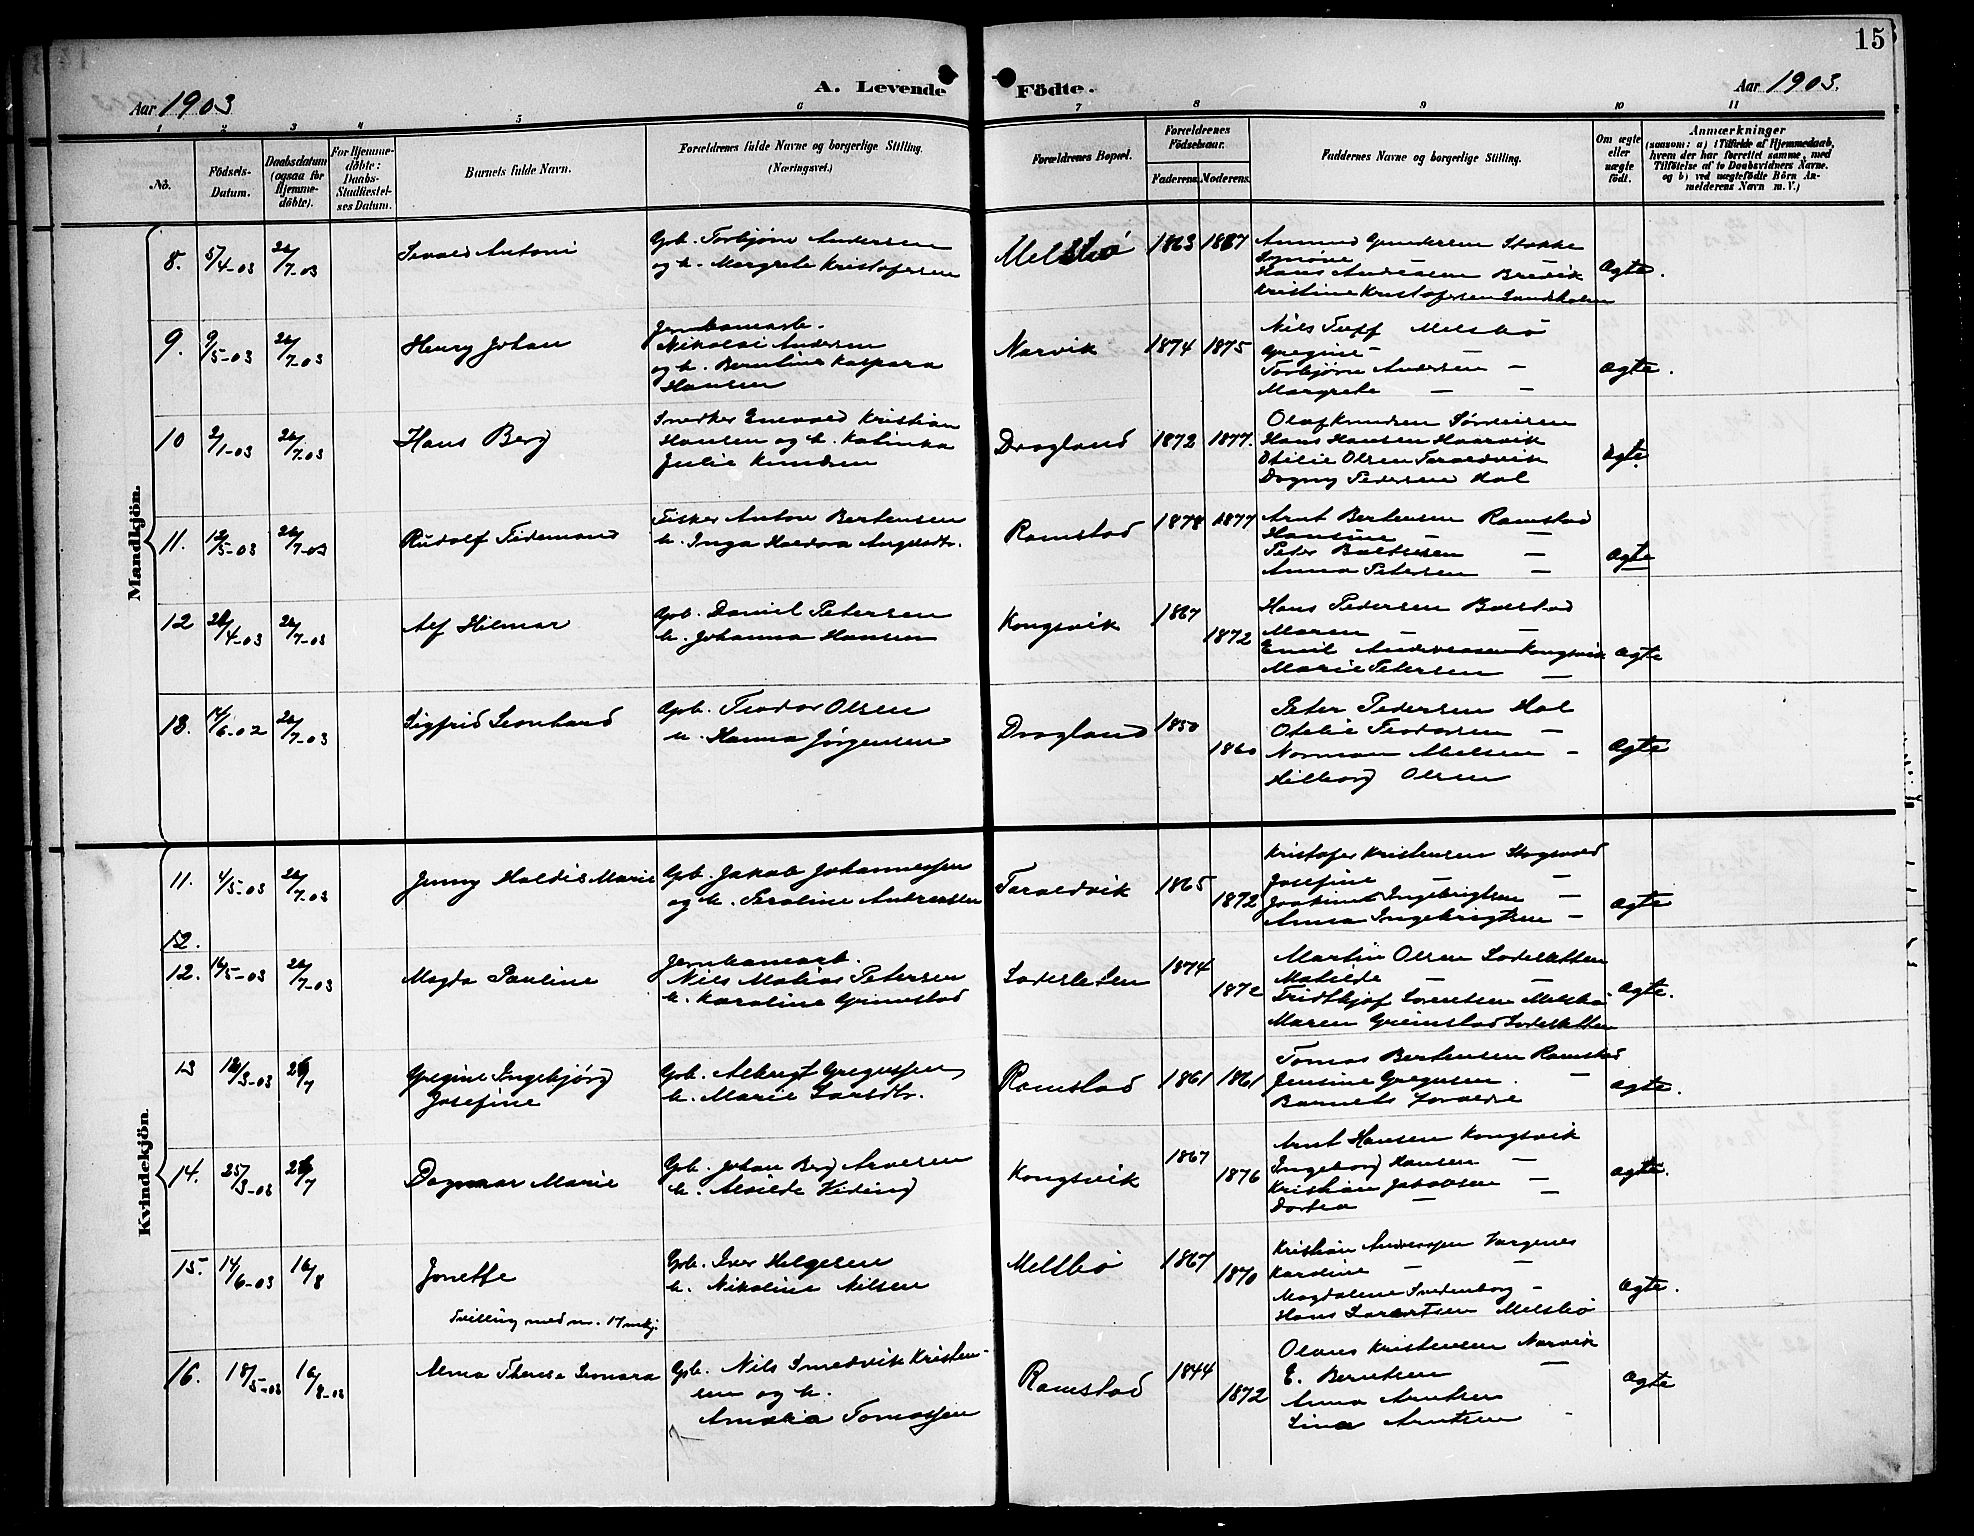 15
A. Levende Födte.
Aar 1903
Aar 1903.
1 2 3 4 5 6 7 8 9 10 11
No.
Födsels-
Datum.
Daabsdatum
(ogsaa for
Hjemme-
döbte).
For Hjemme-
döbte:
Daabs-
Stadfæstel-
ses Datum.
Barnets fulde Navn.
Forældrenes fulde Navne og borgerlige Stilling.
(Næringsvei.)
Forældrenes Bopæl.
Forældrenes
Födselsaar.
Faderens. Moderens.
Faddernes Navne og borgerlige Stilling.
Om ægte
eller
uægte
födt.
Anmærkninger
(saasom: a) i Tilfælde af Hjemmedaab,
hvem der har forrettet samme, med
Tilföielse af to Daabsvidners Navne,
og b) ved uægtefödte Börn An-
melderens Navn m. V.)
Mandkjön.
8. 5/4-03 26/7-03 Sevald Antoni
Gpb. Torbjørn Andersen
og h. Margrete Kristofersen
Melsbø 1863 1867
Amund Gundersen Stokke
Synøve —
Hans Andreasen Brevik
Kristine Kristofersen Sandholm
Ægte.
9. 9/5-03 26/7-03 Henry Johan
Jernbanearb.
Nikolai Andersen
og h. Berntine Kaspara
Hansen
Narvik 1874 1875
Nils Tupf Melsbø
Gregine — —
Torbjørn Andersen —
Margrete — —
Ægte.
10 2/1-03 26/7-03 Hans Berg
Snedker Enevald Kristian
Hansen og h. Katinka
Julie Knudsen
Drogland 1872 1877.
Olaf Knudsen Sørveisen
Hans Hansen Haarvik
Otilie Olsen Taraldvik
Dagny Pedersen Hol
Ægte
11. 12/5-03 26/7-03 Rudolf Tidemand
Fisker Anton Berteusen
h. Inga Haldora Augdahl.
Ramstad 1878 1877
Arnt Berteusen Ramstad
Hansine — —
Peter Baltsersen —
Anna Petersen —
Ægte
12 26/4-03 26/7-03 Alf Hilmar
Gpb. Daniel Petersen
h. Johanna Hansen
Kongsvik 1867 1872
Hans Pedersen Bolstad
Maren — —
Emil Andreassen Kongsvik
Marie Petersen —
Ægte
13. 14/6-02 26/7-03 Sigfrid Leonhard
Gpb. Teodor Olsen
h. Hanna Jørgensen
Drogland 1850 1860
Peter Pedersen Hol
Otelie Teodorsen —
Norman Nielsen —
Hilborg Olsen
Ægte
Kvindekjön.
11. 4/5-03 26/7-03 Jenny Haldis Marie
Gpb. Jakob Johannessen
og h. Paroline Andreassen
Taraldvik 1865 1872
Kristofer Kristensen Skogsvold
Josefine — —
Joakim Ingebrigtsen —
Anna Ingebrigtsen —
Ægte
12.
12. 16/5-03 26/7-03 Magda Pauline
Jernbanearb.
Nils Matias Petersen
h. Karoline Grimstad
Sodesleten 1874 1872
Martin Olsen Sodesletten
Matilde — —
Fridthjof Lorentsen Melsbø
Maren Grimstad Sodesletten
Ægte.
13 18/3-03 26/7 Gregine Ingebjørg
Josefine
Gpb. Albrigt Gregussen
h. Marie Larsdtr.
Ramstad 1861 1861
Tomas Berteusen Ramstad
Jensine Gregusen. —
Barnets Forældre
Ægte.
14. 25/3-03 26/7 Dagmar Marie
Gpb. Johan Berg Arvesen
h. Alvilde Hiding
Kongsvik 1867 1876
Arnt Hansen Kongsvik
Ingeborg Hansen —
Kristian Jakobsen —
Dortea — —
Ægte.
15. 14/6-03 16/8 Jonette
Tvilling med n. 17 mkj.
Gpb. Iver Helgesen
h. Nikoline Nilsen
Melsbø 1867 1870
Kristian Andreassen Vargenes
Karoline — —
Magdalene Svedenborg —
Hans Lorentsen Melsbø
Ægte.
16. 18/5-03 16/8-03 Alma Therese Leonara
Gpb. Nils Smedvik Kristen-
sen og h.
Amalia Tomassen
Ramstad 1844 1872
Olaus Kristensen Narvik
E. Berntsen —
Anna Arntsen
Lina Arntsen —
Ægte